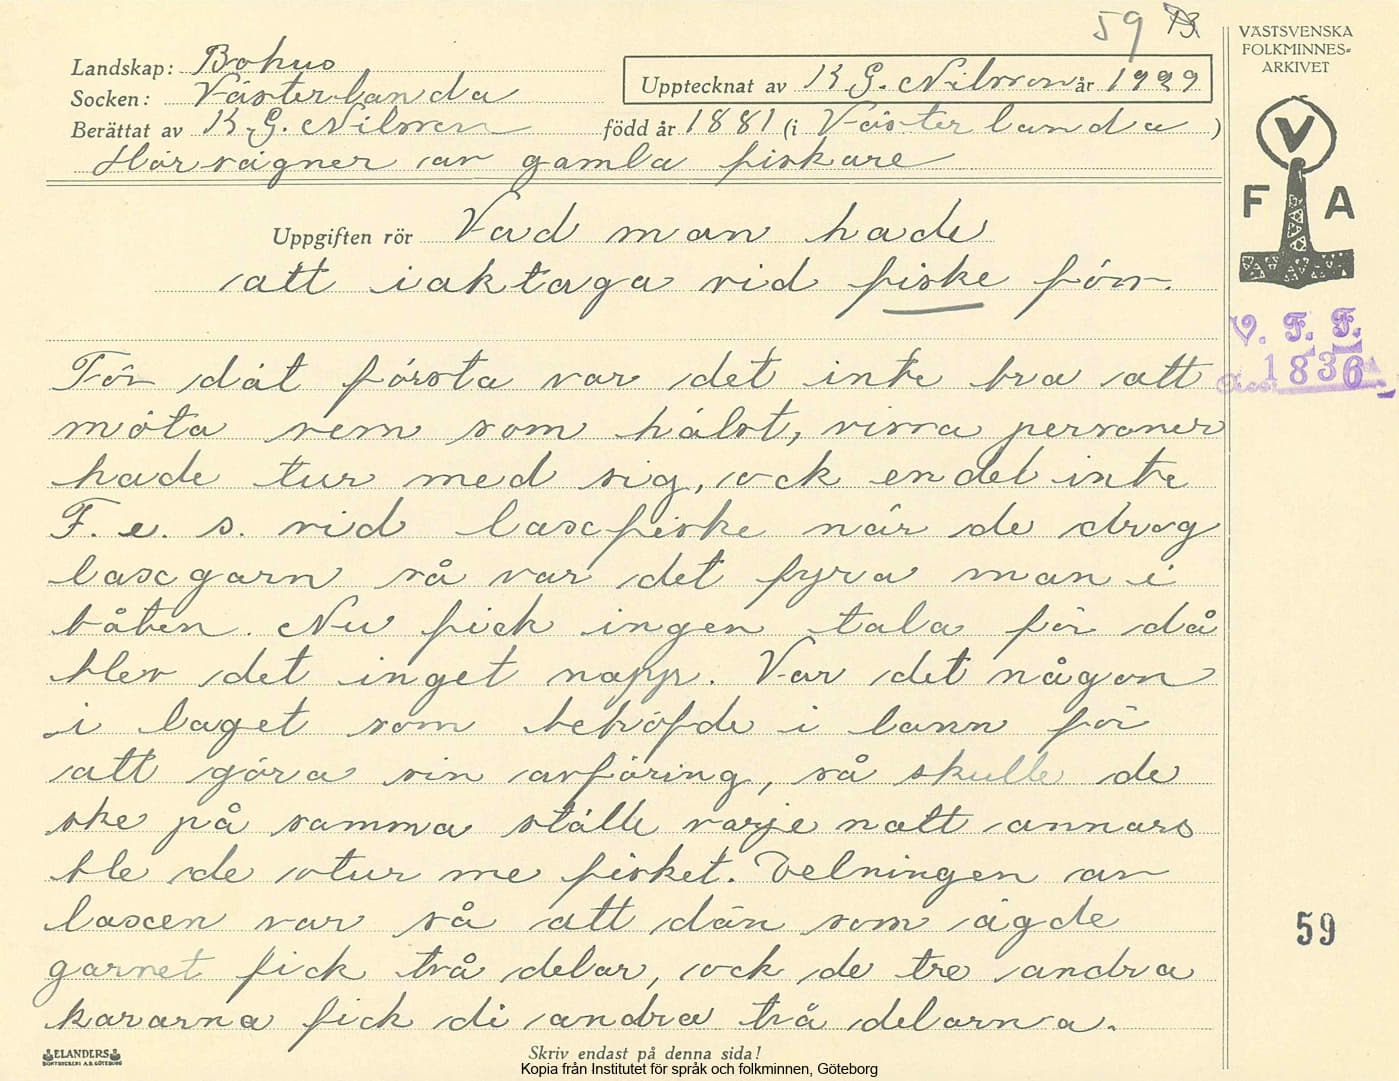 59
VÄSTSVENSKA
FOLKMINNES=
ARKIVET
Landskap: Bohus
Socken: Västerlanda
Upptecknat av K. G. Nilsson år 1929
Berättat av K. G. Nilsson född år 1881 (i Västerlanda )
Hörsägner av gamla fiskare
V
F A
Uppgiften rör Vad man hade
att iaktaga vid fiske förr.
V. F. F.
Acc. 1836
För dät första var det inte bra att
möta vem som hälst, vissa personer
hade tur med sig, ock en del inte
F. e. s. vid laxfiske när de drog
laxgarn så var det fyra man i
båten. Nu fick ingen tala för då
blev det inget napp. Var det någon
i laget som behöfde i lann för
att göra sin avföring, så skulle de
ske på samma ställe varje natt annars
ble de otur me fisket. Delningen av
laxen var så att dän som ägde
garnet fick två delar, ock de tre andra
kararna fick di andra två delarna.
59
ELANDERS
BOKTRYCKERI A.B. GÖTEBORG
Skriv endast på denna sida!
Kopia från Institutet för språk och folkminnen, Göteborg